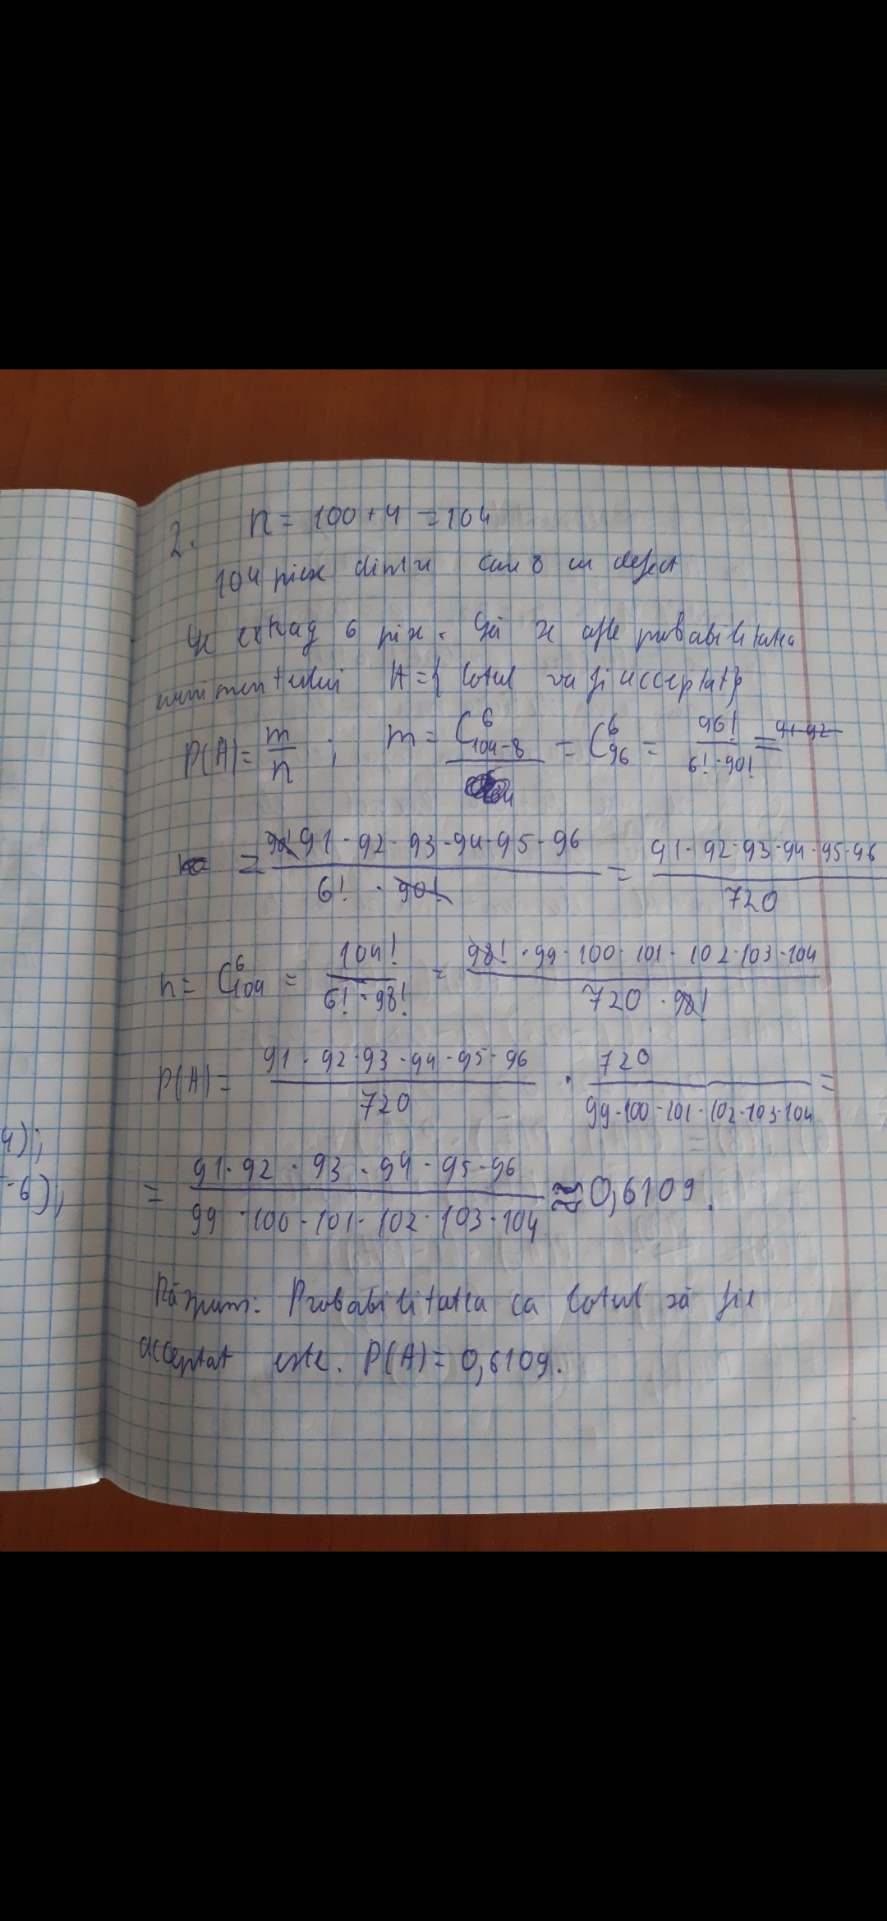 2. n = 100 + 4 = 104
104 piese dintre care 8 cu defect
Se extrag 6 pise. Să se afle probabilitatea
evenimentului A = { lotul va fi acceptat}
P(A) = m/n ; m = C⁶₁₀₄₋₈ = C⁶₉₆ = 96!/(6! · 90!) =
= 90! 91 · 92 · 93 · 94 · 95 · 96/(6! · 90!) = 91 · 92 · 93 · 94 · 95 · 96/720
n = C⁶₁₀₄ = 104!/(6! · 98!) = 98! · 99 · 100 · 101 · 102 · 103 · 104/(720 · 98!)
P(A) = 91 · 92 · 93 · 94 · 95 · 96/720 · 720/(99 · 100 · 101 · 102 · 103 · 104) =
= 91 · 92 · 93 · 94 · 95 · 96/(99 · 100 · 101 · 102 · 103 · 104) ≈ 0,6109.
Răspuns: Probabilitatea ca lotul să fie
acceptat este. P(A) = 0,6109.
4);
-6);